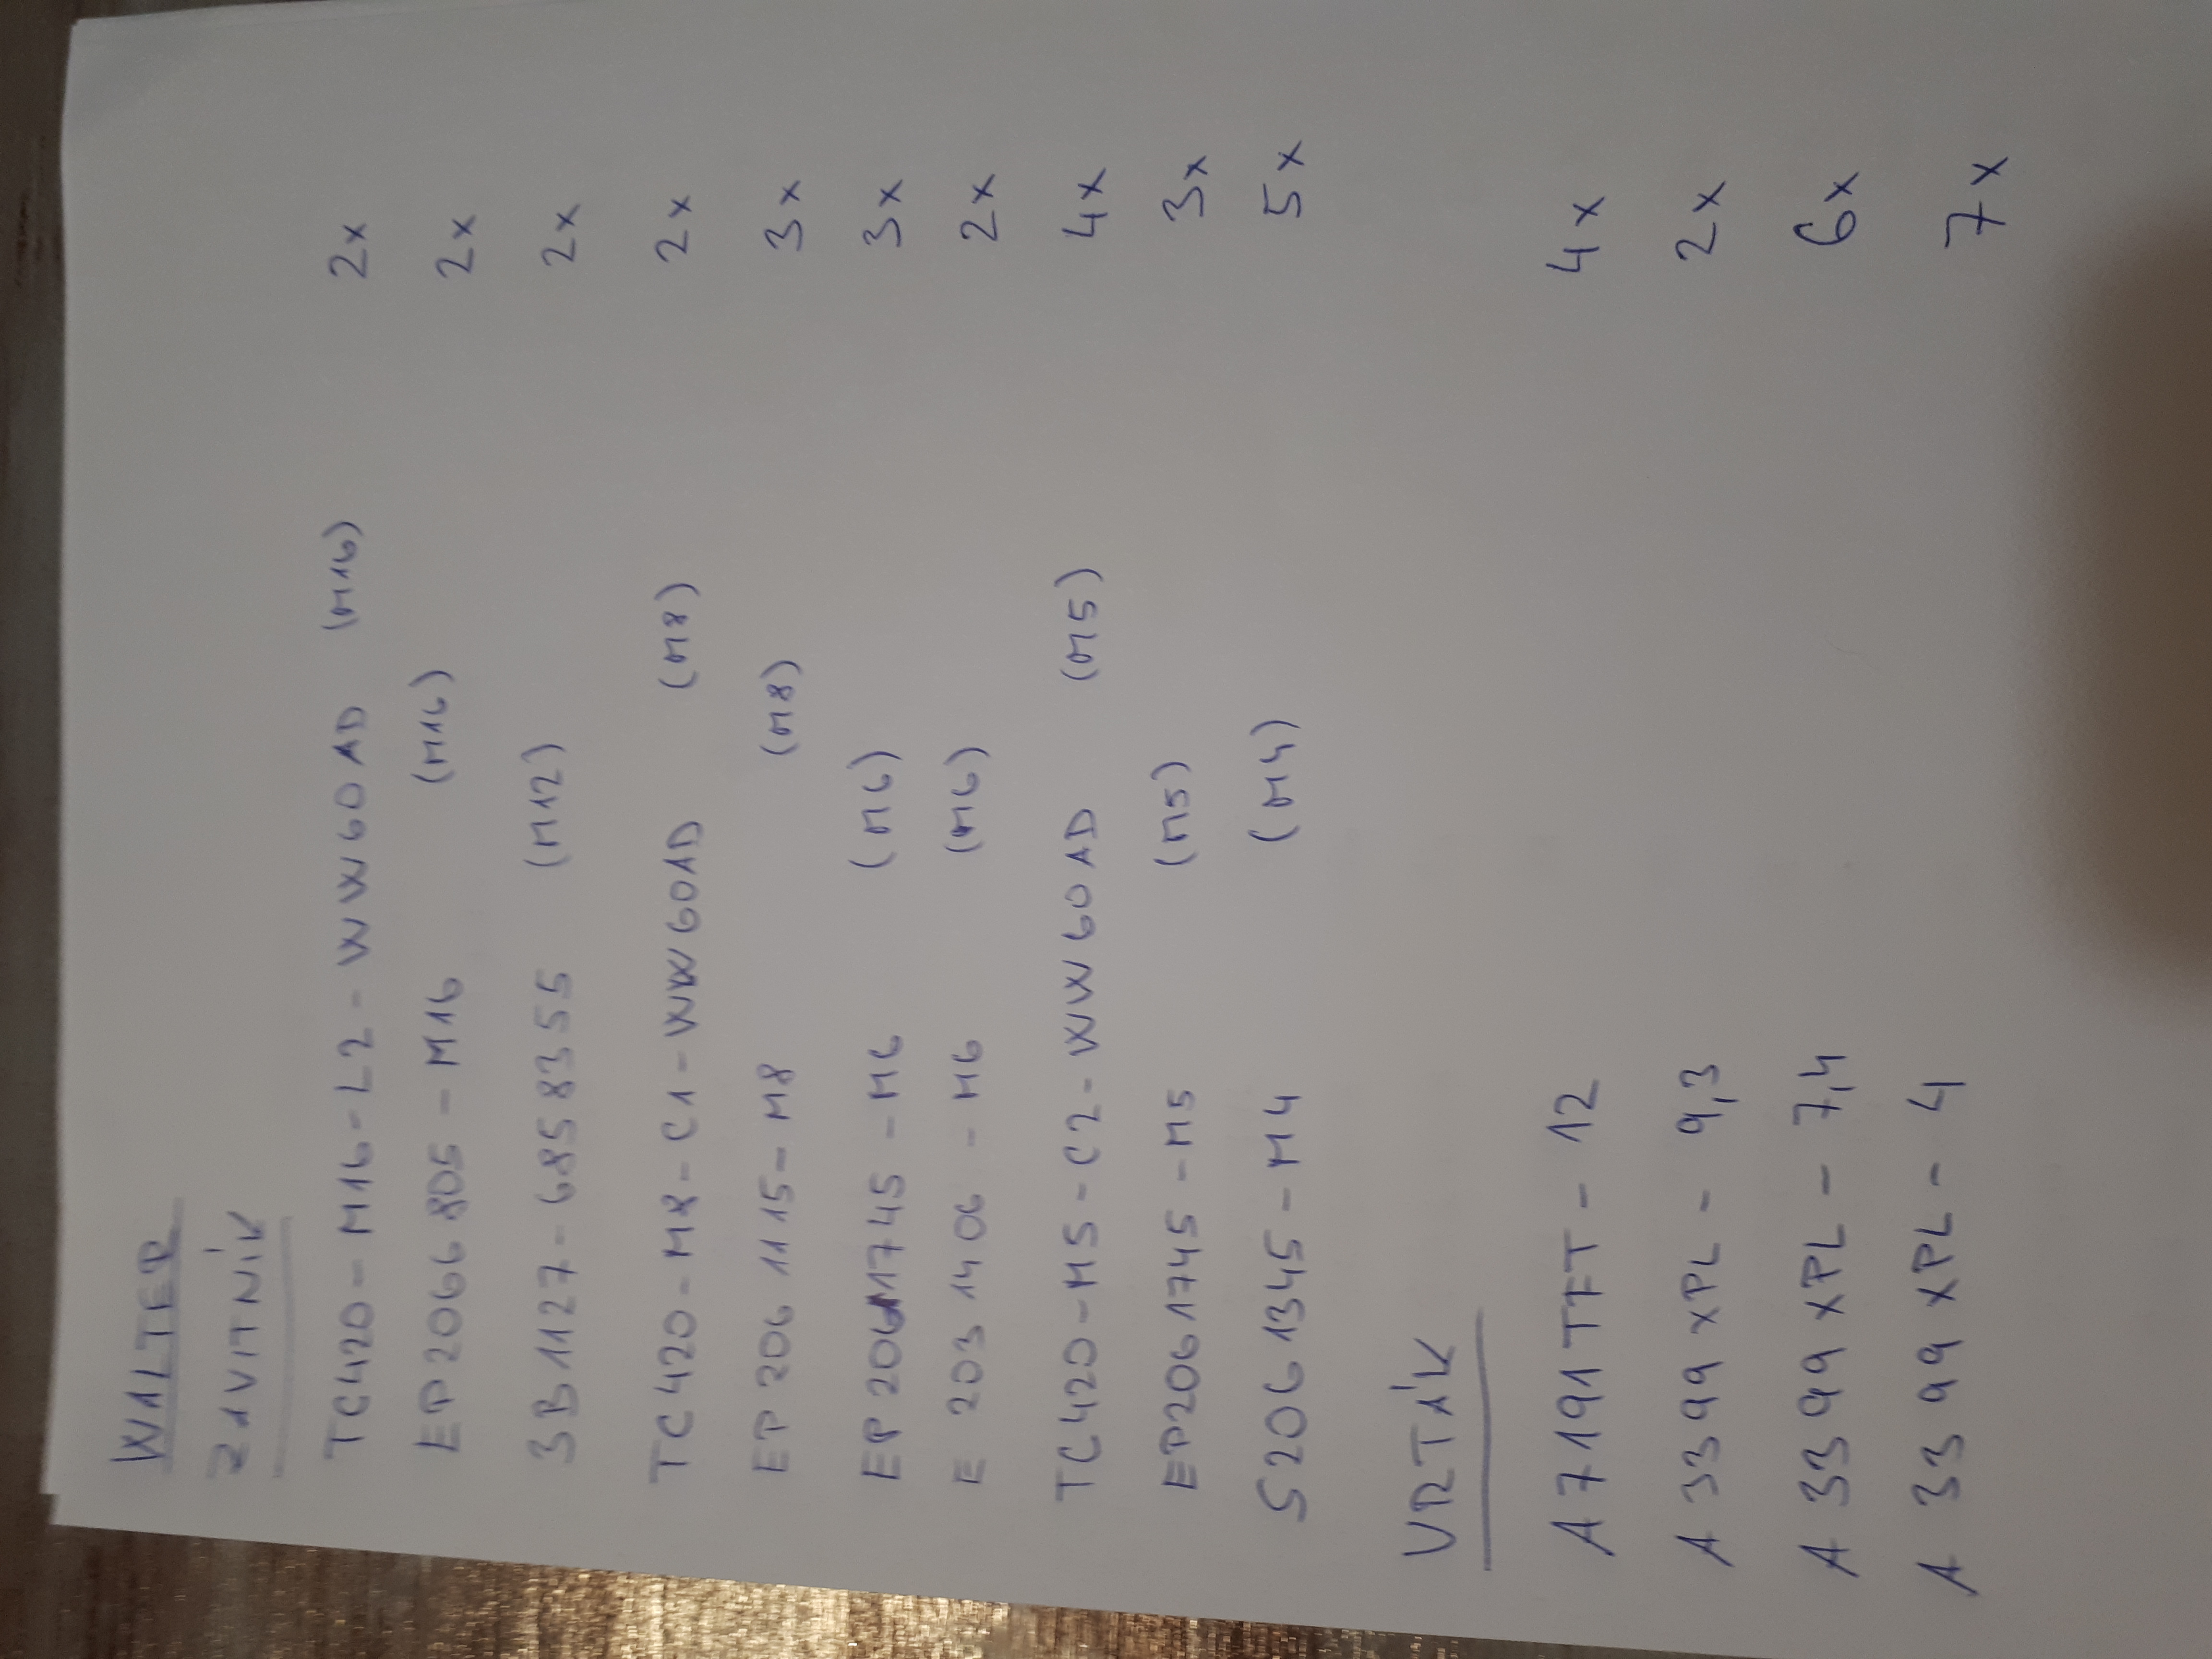 WALTER
ZÁVITNÍK
TC420-M16-L2-WW60AD (M16) 2x
EP2066805-M16 (M16) 2x
3B1127-6858355 (M12) 2x
TC420-M8-C1-WW60AD (M8) 2x
EP2061115-M8 (M8) 3x
EP2061745-M6 (M6) 3x
E 2031406-M6 (M6) 2x
TC420-M5-C2-WW60AD (M5) 4x
EP2061745-M5 (M5) 3x
S2061345-M4 (M4) 5x
VRTÁK
A7191TFT-12 4x
A3399XPL-9,3 2x
A3399XPL-7,4 6x
A3399XPL-4 7x